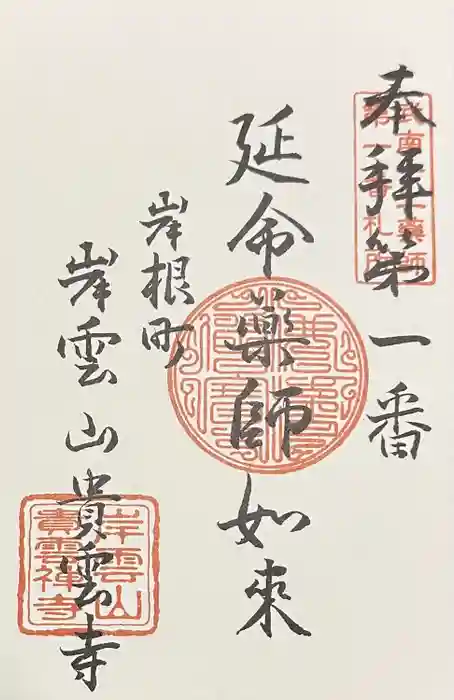 奉拝第一番
武南十二薬師
第一番札所
延命薬師如来
岸根町
岸雲山貴雲寺
岸雲山
貴雲禅寺